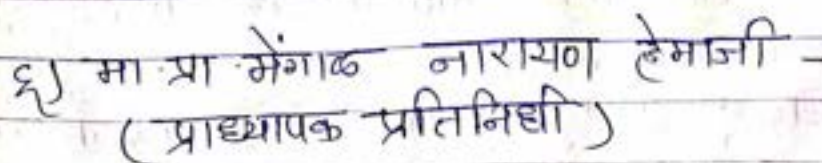 ६) मा.प्रा.मेंगाळ नारायण हेमाजी -
(प्राध्यापक प्रतिनिधी)